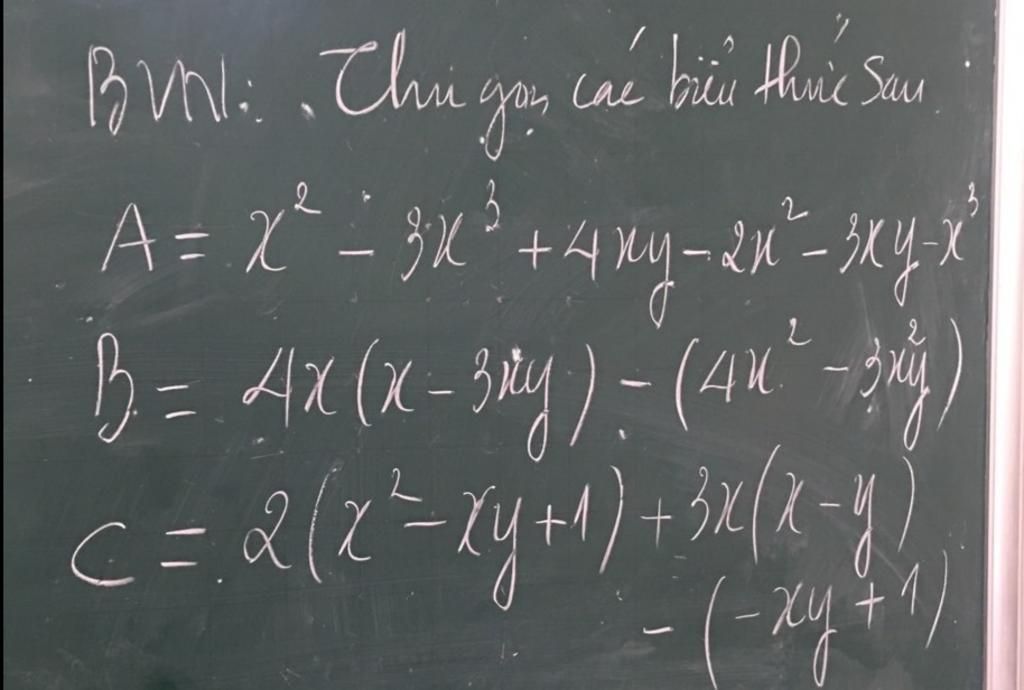 BVN: Thu gọn các biểu thức sau
A = x² - 3x³ + 4xy - 2x² - 3xy - x³
B = 4x(x - 3xy) - (4x² - 3x²y)
C = 2(x² - xy + 1) + 3x(x - y)
- (-xy + 1)